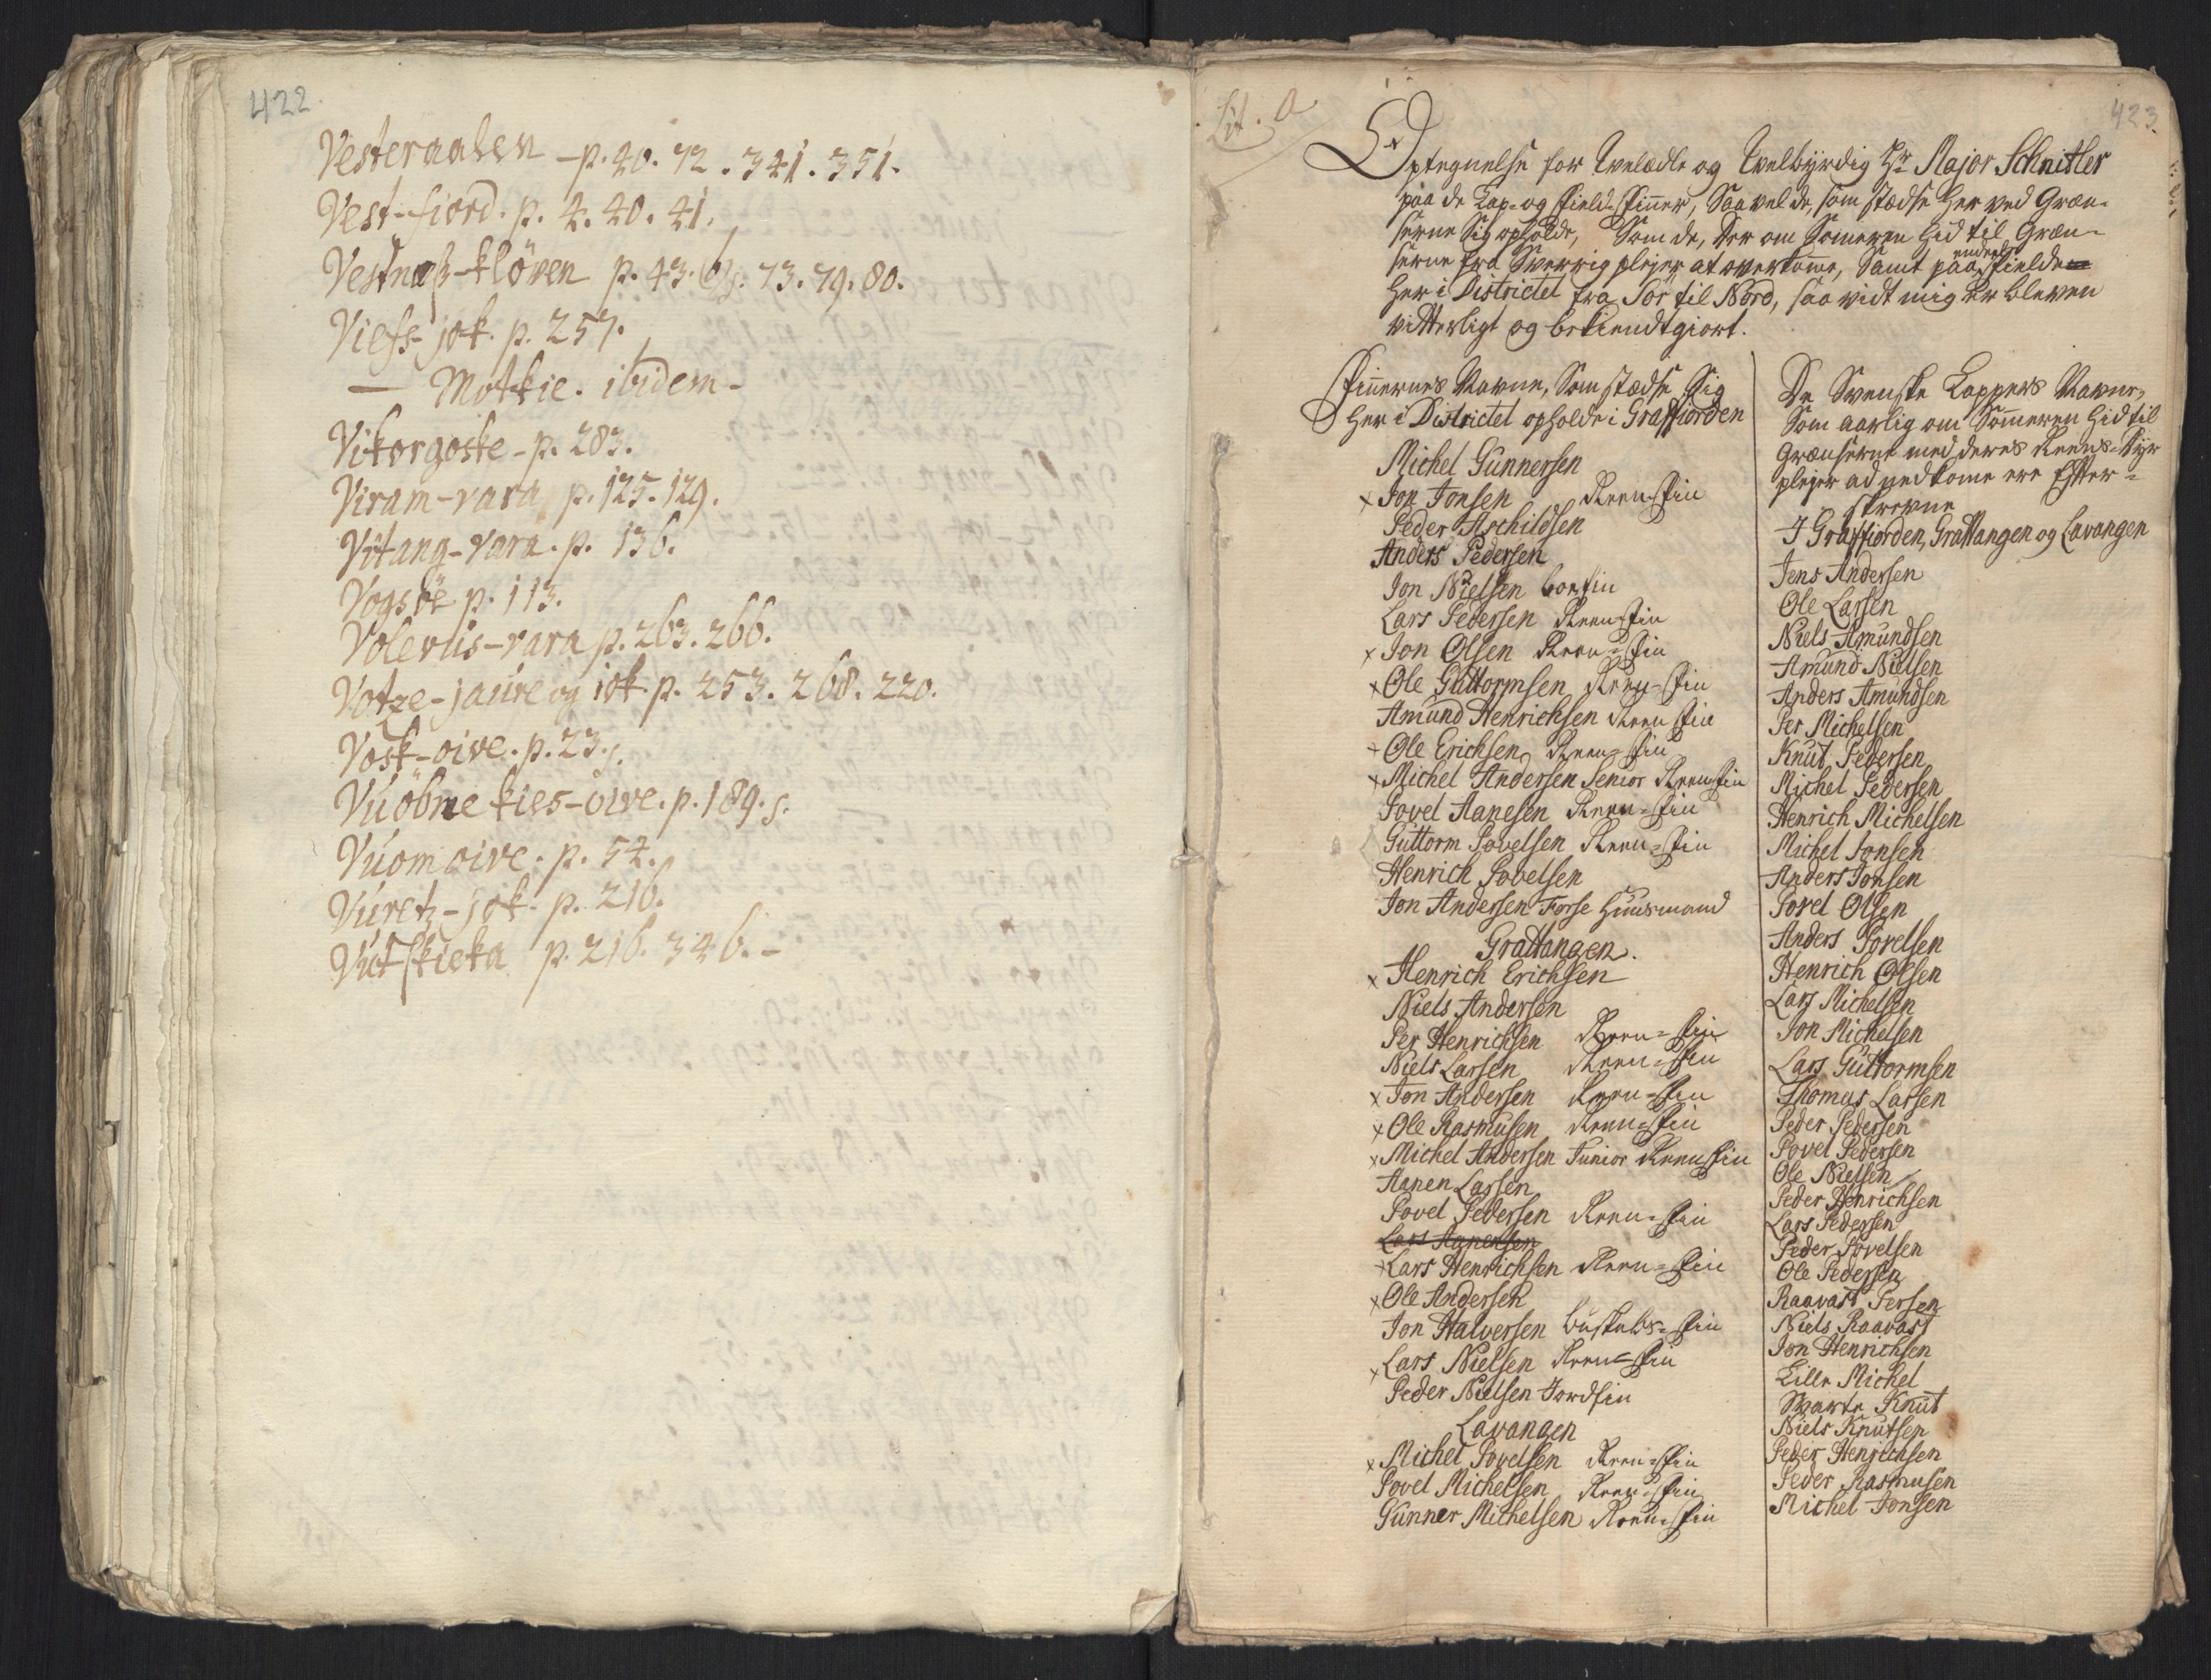 422.
Vesteraalen - p. 40. 72. 341. 351.
Vest-fiord. p. 4. 40. 41.
Vestnæß-klöven p. 43. 73. 79. 80.
Viefs-jok. p. 257.
— Motkie. ibidem -
Vikorgoske - p. 283.
Viram-vara p. 125. 129.
Vitang-vara. p. 136.
Vogsöe p. 113.
Volevus-vara p. 263. 266.
Votze-jaure og jok. p. 253. 268. 220.
Vosk-oive. p. 23.
Vuobme kies-oive. p. 189. s.
Vuomoive. p. 54.
Vuretz-jok. p. 216.
Vutskieka p. 216. 346. -
Lit. A
423.
Optegnelse for Welædle og Welbyrdig Hr Major Schnitler
paa de Lap- og Field-Finner, Saavel de, som stædse her ved Græn-
serne Sig opholde, Som de, der om Someren hid til Græn-
serne fra Sverrig plejer at overkomme, Samt paa Fielde
her i Districtet fra Sör til Nord, saa vidt mig er bleven
vitterligt og bekiendtgiort.
Finnernes Navne, Som stædse Sig
her i Districtet opholde i Graffiorden
Michel Gunnersen
x Jon Jonsen Reen-Fin
Peder Aschildsen
Anders Pedersen
Jon Nielsen boefin
Lars Pedersen Reen-Fin
x Jon Olsen Reen-Fin
x Ole Guttormsen Reen-Fin
Amund Henrichsen Reen Fin
x Ole Erichsen Reen-Fin
x Michel Andersen Senior Reen Fin
Povel Aanesen Reen-Fin
Guttorm Povelsen Reen-Fin
Henrich Povelsen
Jon Andersen Forse Huusmand
Grattangen.
x Henrich Erichsen
Niels Andersen
Per Henrichsen Reen-Fin
Niels Larsen Reen-Fin
x Jon Andersen Reen-Fin
x Ole Rasmusen Reen-Fin
x Michel Andersen Junior Reen Fin
Aanen Larsen
Povel Pedersen Reen-Fin
Lars Aanensen
x Lars Henrichsen Reen-Fin
x Ole Andersen
Jon Halversen buskabs-Fin
x Lars Nielsen Reen-Fin
Peder Nielsen Jordfin
Lavangen
x Michel Povelsen Reen-Fin
Povel Michelsen Reen-Fin
Gunner Michelsen Reen-Fin
De Svenske Lappers Navne,
Som aarlig om Sommeren hid til
Grænserne med deres Reens-Dyr
plejer ad nedkome ere Efter-
skrevne
I Graffiorden, Grattangen og Lavangen
Jens Andersen
Ole Larsen
Niels Amundsen
Amund Nielsen
Anders Amundsen
Per Michelsen
Knut Pedersen
Michel Pedersen
Henrich Michelsen
Michel Jonsen
Anders Jonsen
Povel Olsen
Anders Povelsen
Henrich Olsen
Lars Michelsen
Jon Michelsen
Lars Guttormsen
Thomas Larsen
Peder Pedersen
Povel Pedersen
Ole Nielsen
Peder Henrichsen
Lars Pedersen
Peder Povelsen
Ole Pedersen
Raavast Persen
Niels Raavast
Jon Henrichsen
Lille Michel
Svarte Knut
Niels Knutsen
Peder Henrichsen
Peder Rasmusen
Michel Jonsen